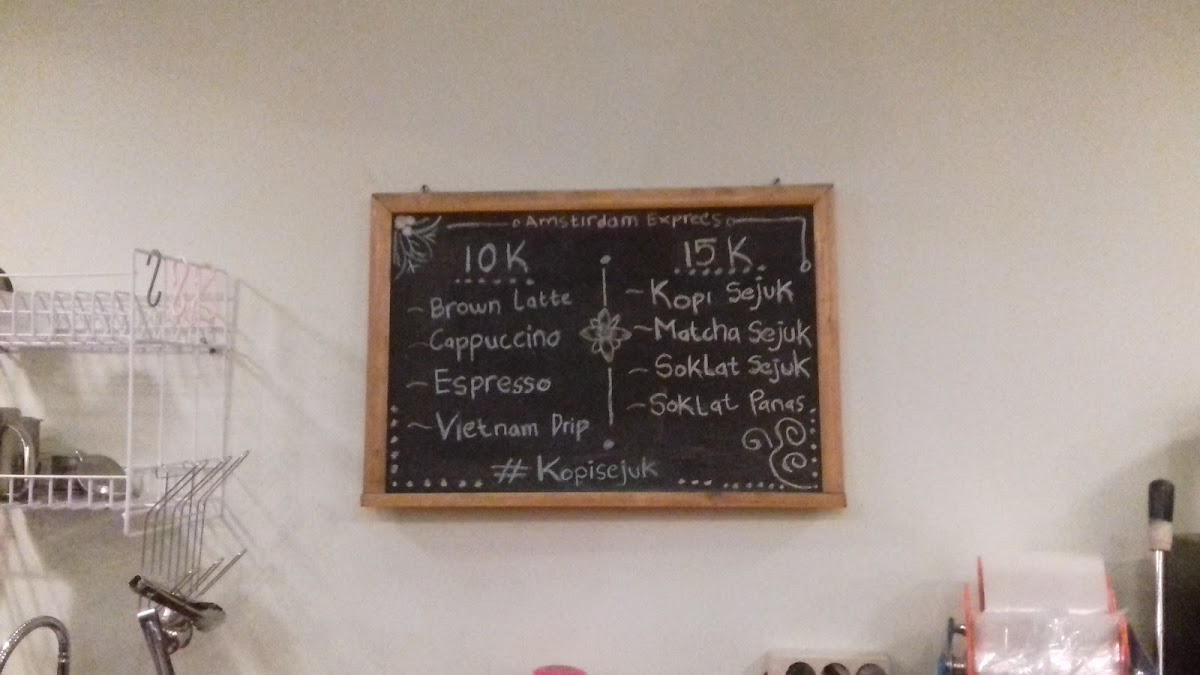 Amstirdam Exprees
10K
~ Brown Latte
~ Cappuccino
~ Espresso
~ Vietnam Drip
15K
~ Kopi Sejuk
~ Matcha Sejuk
~ Soklat Sejuk
~ Soklat Panas
# Kopisejuk